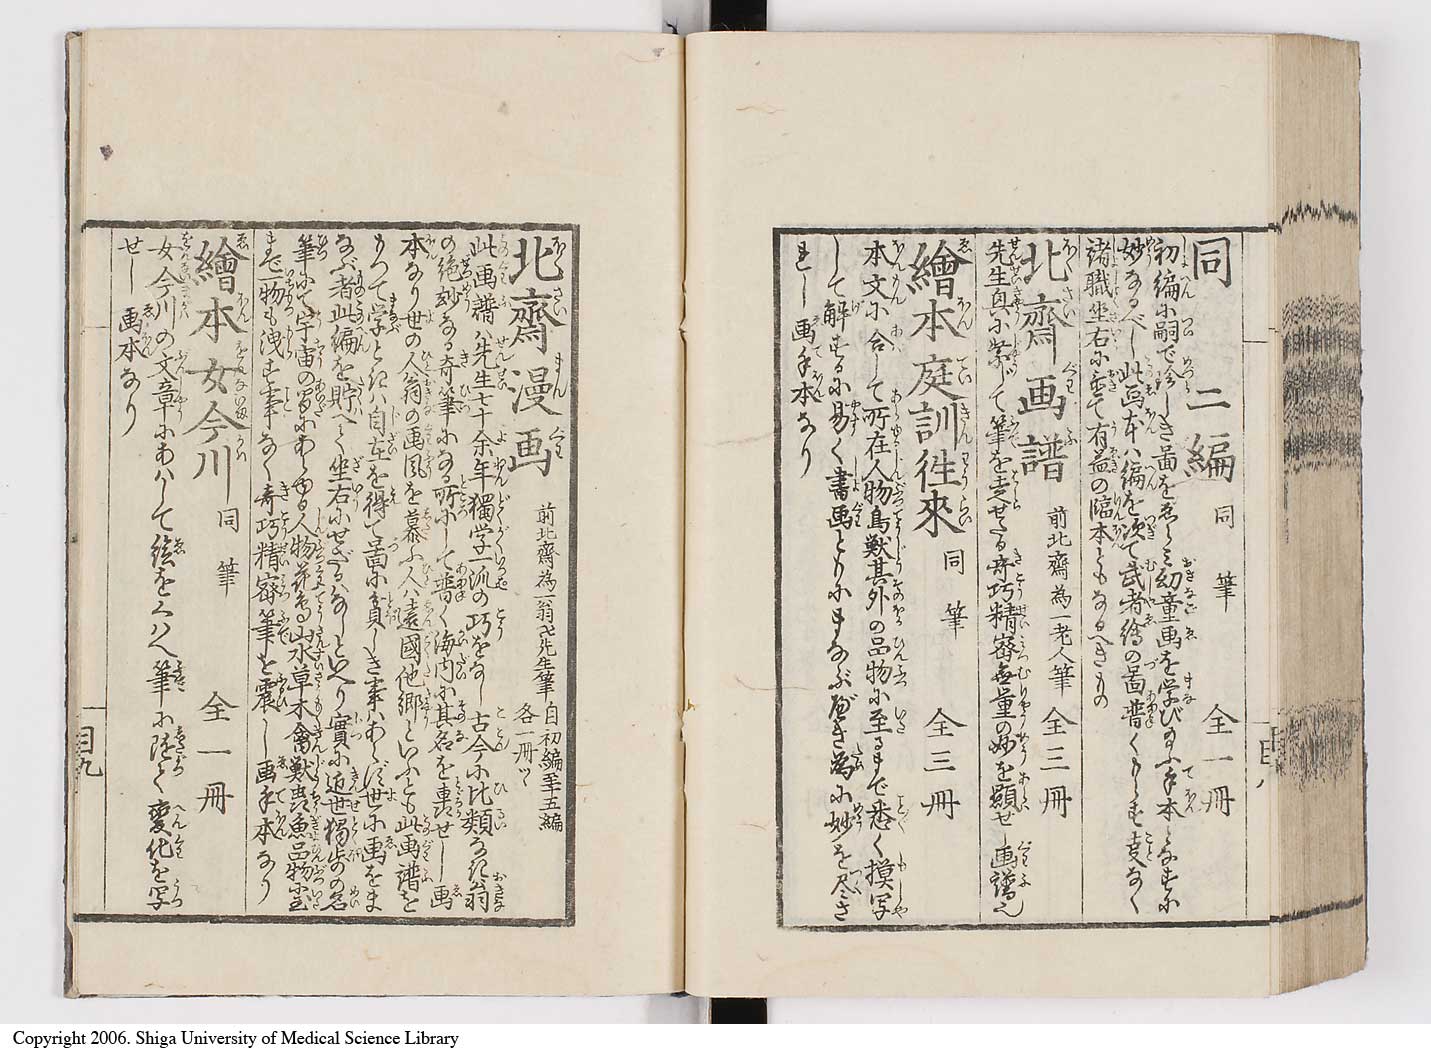 同二編 同筆 全一冊
初編に嗣で珍しき畾をゑらミ幼童画を学びの手本となすに
妙なるべし此画本ハ編を次で武者繪の畾普くもらす事なく
諸職坐右に置て有益の臨本ともなるへきもの
北齋画譜 前北齋為一老人筆 全三冊
先生臭に常て筆を走せたる奇巧精密無量の妙を顕せし画譜也
繪本庭訓徃來 同筆 全三冊
本文に合して所在人物鳥獣其外の品物に至るまで悉く摸写
して解するに易く書画ともにまなぶべき為に妙を尽さ
れし画手本なり
目八
北齋漫画 前北齋為一翁先生筆 自初編至十五編 各一冊ツヽ
此画譜ハ先生七十余年獨学一流の巧をなし古今に比類なき翁
の絶妙なる奇筆になる所にして普く海内に其名を轟せし画
本なり世の人翁の画風を慕ふ人ハ遠國他郷といふとも此画譜を
もつて学ときハ自在を得て畾に負しき事ハあらず世に画をま
なぶ者此編を貯へて坐右にせざるなしといへり實に近世獨歩の名
筆にて宇宙の間にあらゆる人物花鳥山水草木禽獣虫魚品物に至
まで一物も洩す事なく奇巧精密筆を震し画手本なり
繪本女今川 同筆 全一冊
女今川の文章にあハして繪をくはへ筆に随て変化を写
せし画本なり
目九
Copyright 2006. Shiga University of Medical Science Library